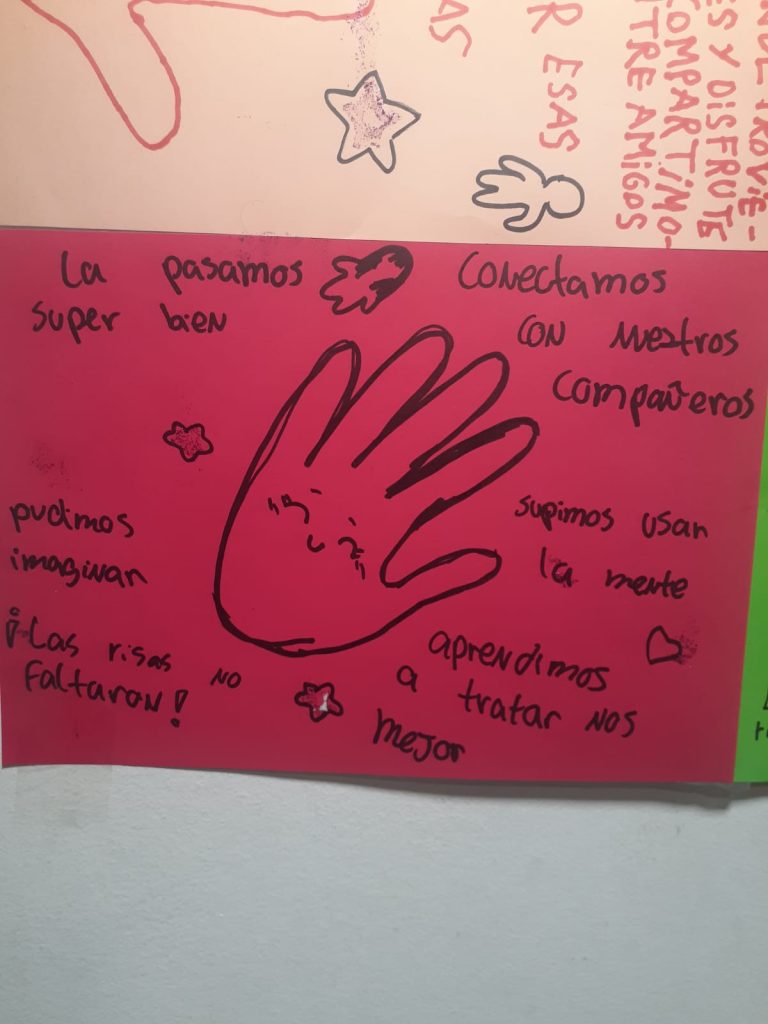 AS
R ESAS
ES Y DISFRUTE
COMPARTIMO-
TRE AMIGOS
La pasamos
super bien
Conectamos
con nuestros
compañeros
pudimos
imaginar
supimos usar
la mente
¡Las risas no
faltaron!
aprendimos
a tratar nos
mejor